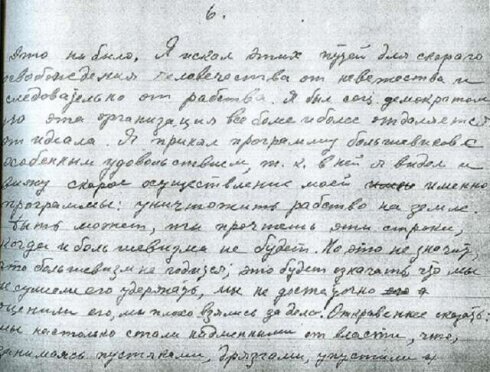 6.
это ни было. Я искал этих путей для скораго
освобождения человечества от невежества и
следовательно от рабства. Я был соц. демократом
но эта организация все более и более отдаляется
от идеала. Я принял программу большевиков с
особенным удовольствием, т. к. в ней я видел и
вижу скорое осуществление моей именно
программы: уничтожить рабство на земле.
Быть может, ты прочтешь эти строки,
когда и большевизма не будет. Но это не значит,
что большевизм не годился, это будет означать, что мы
не сумели его удержать, мы не достаточно
оценили его, мы плохо взялись за дело. Откровеннее сказать:
мы настолько стали надменными от власти, что,
занимаясь пустяками, дрязгами, упустили